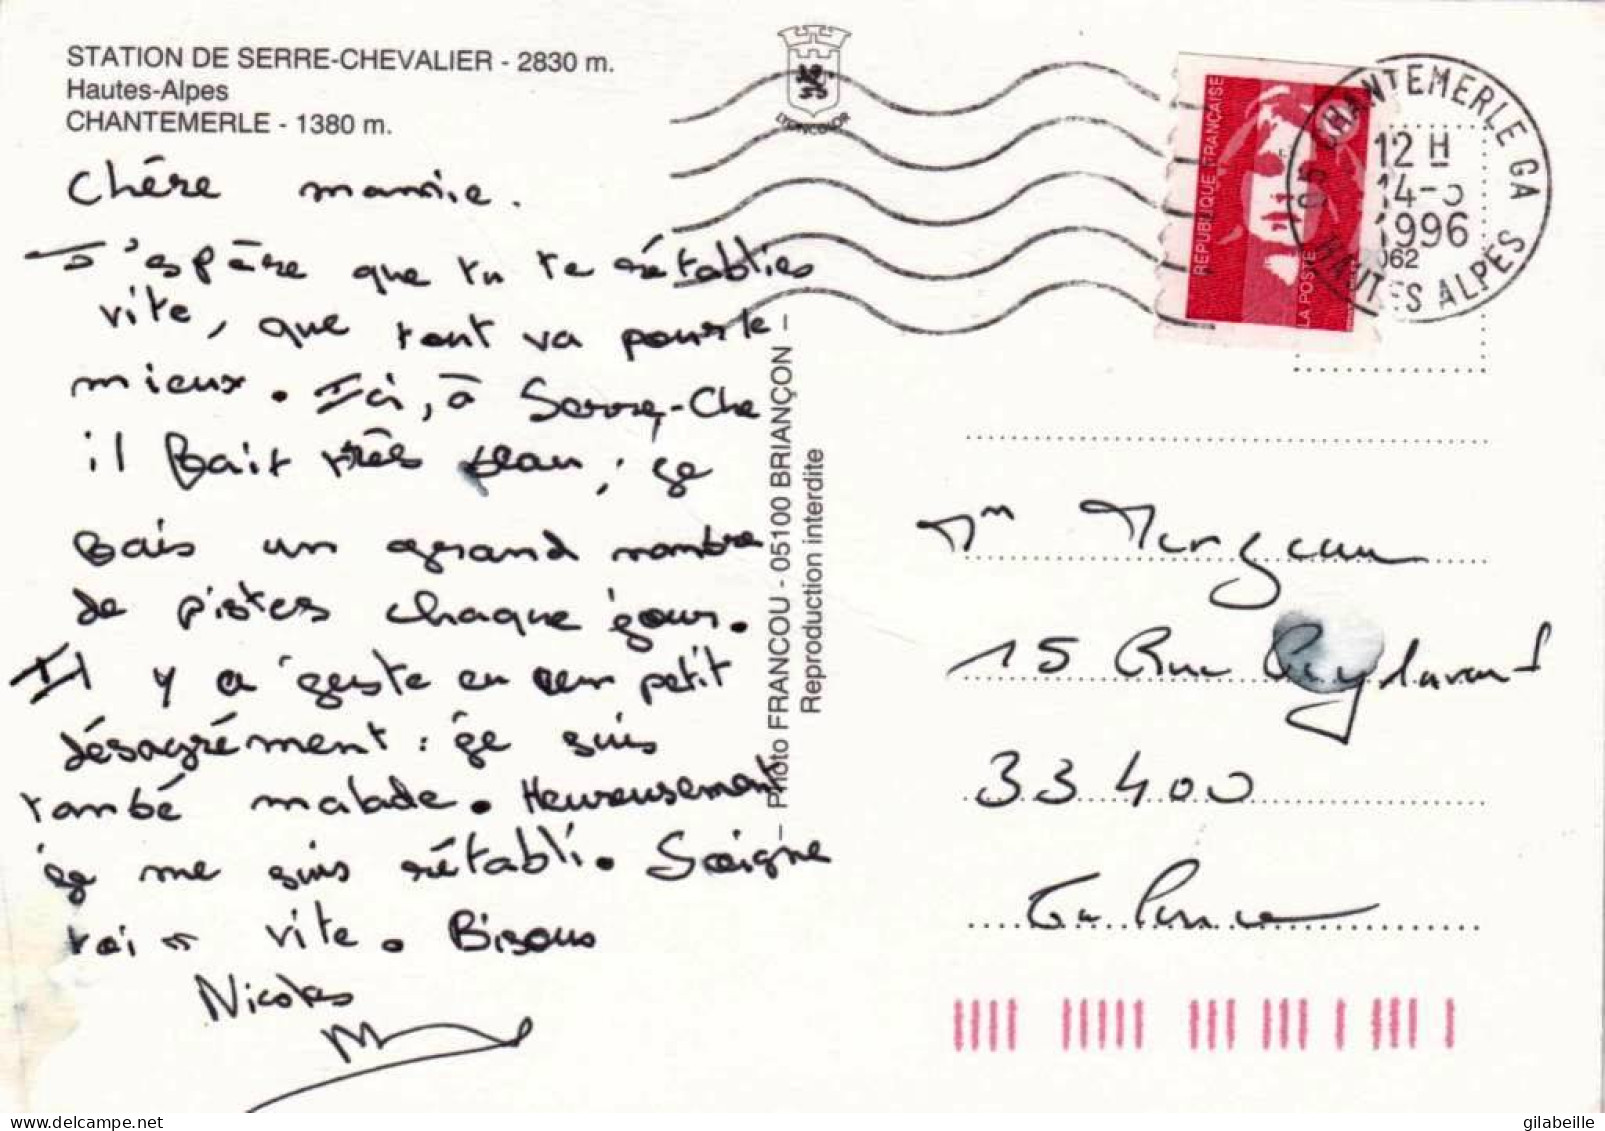 STATION DE SERRE-CHEVALIER - 2830 m.
Hautes-Alpes
CHANTEMERLE - 1380 m.
Chère mamie.
J'espère que tu te rétablies
vite, que tout va pour le
mieux. Ici, à Serre-Che
il fait très beau ; je
fais un grand nombre
de pistes chaque jour.
Il y a juste eu un petit
désagrément : je suis
tombé malade. Heureusement
je me suis rétabli. Soigne
toi vite. Bisous
Nicolas
Photo FRANCOU - 05100 BRIANÇON -
Reproduction interdite
LYONCOLOR
REPUBLIQUE FRANÇAISE
LA POSTE
05 CHANTEMERLE GA
12 H
14-3
1996
HAUTES ALPES
062
15 Rue
33400
Talence
gilabeille